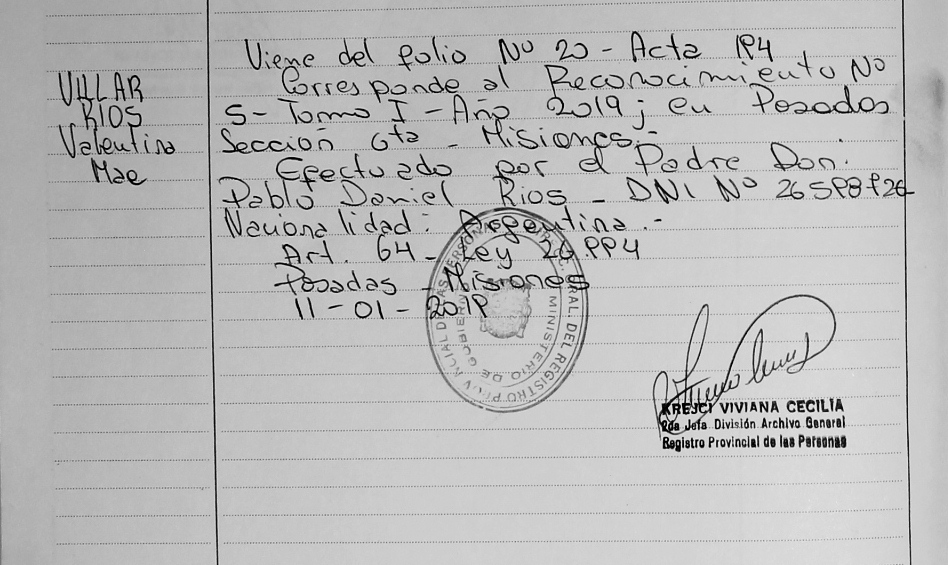 VILLAR
RIOS
Valentina
Mae
Viene del folio Nº 20 - Acta 194
Corresponde al Reconocimiento Nº
5 - Tomo I - Año 2019; en Posadas
Sección 6ta - Misiones.-
Efectuado por el Padre Don:
Pablo Daniel Rios - DNI Nº
Nacionalidad: Argentina.-
Art. 64 - Ley 26.994
Posadas - Misiones
11-01-2019
MINISTERIO DE GOBIERN
KREJCI VIVIANA CECILIA
2da Jefa División Archivo General
Registro Provincial de las Personas